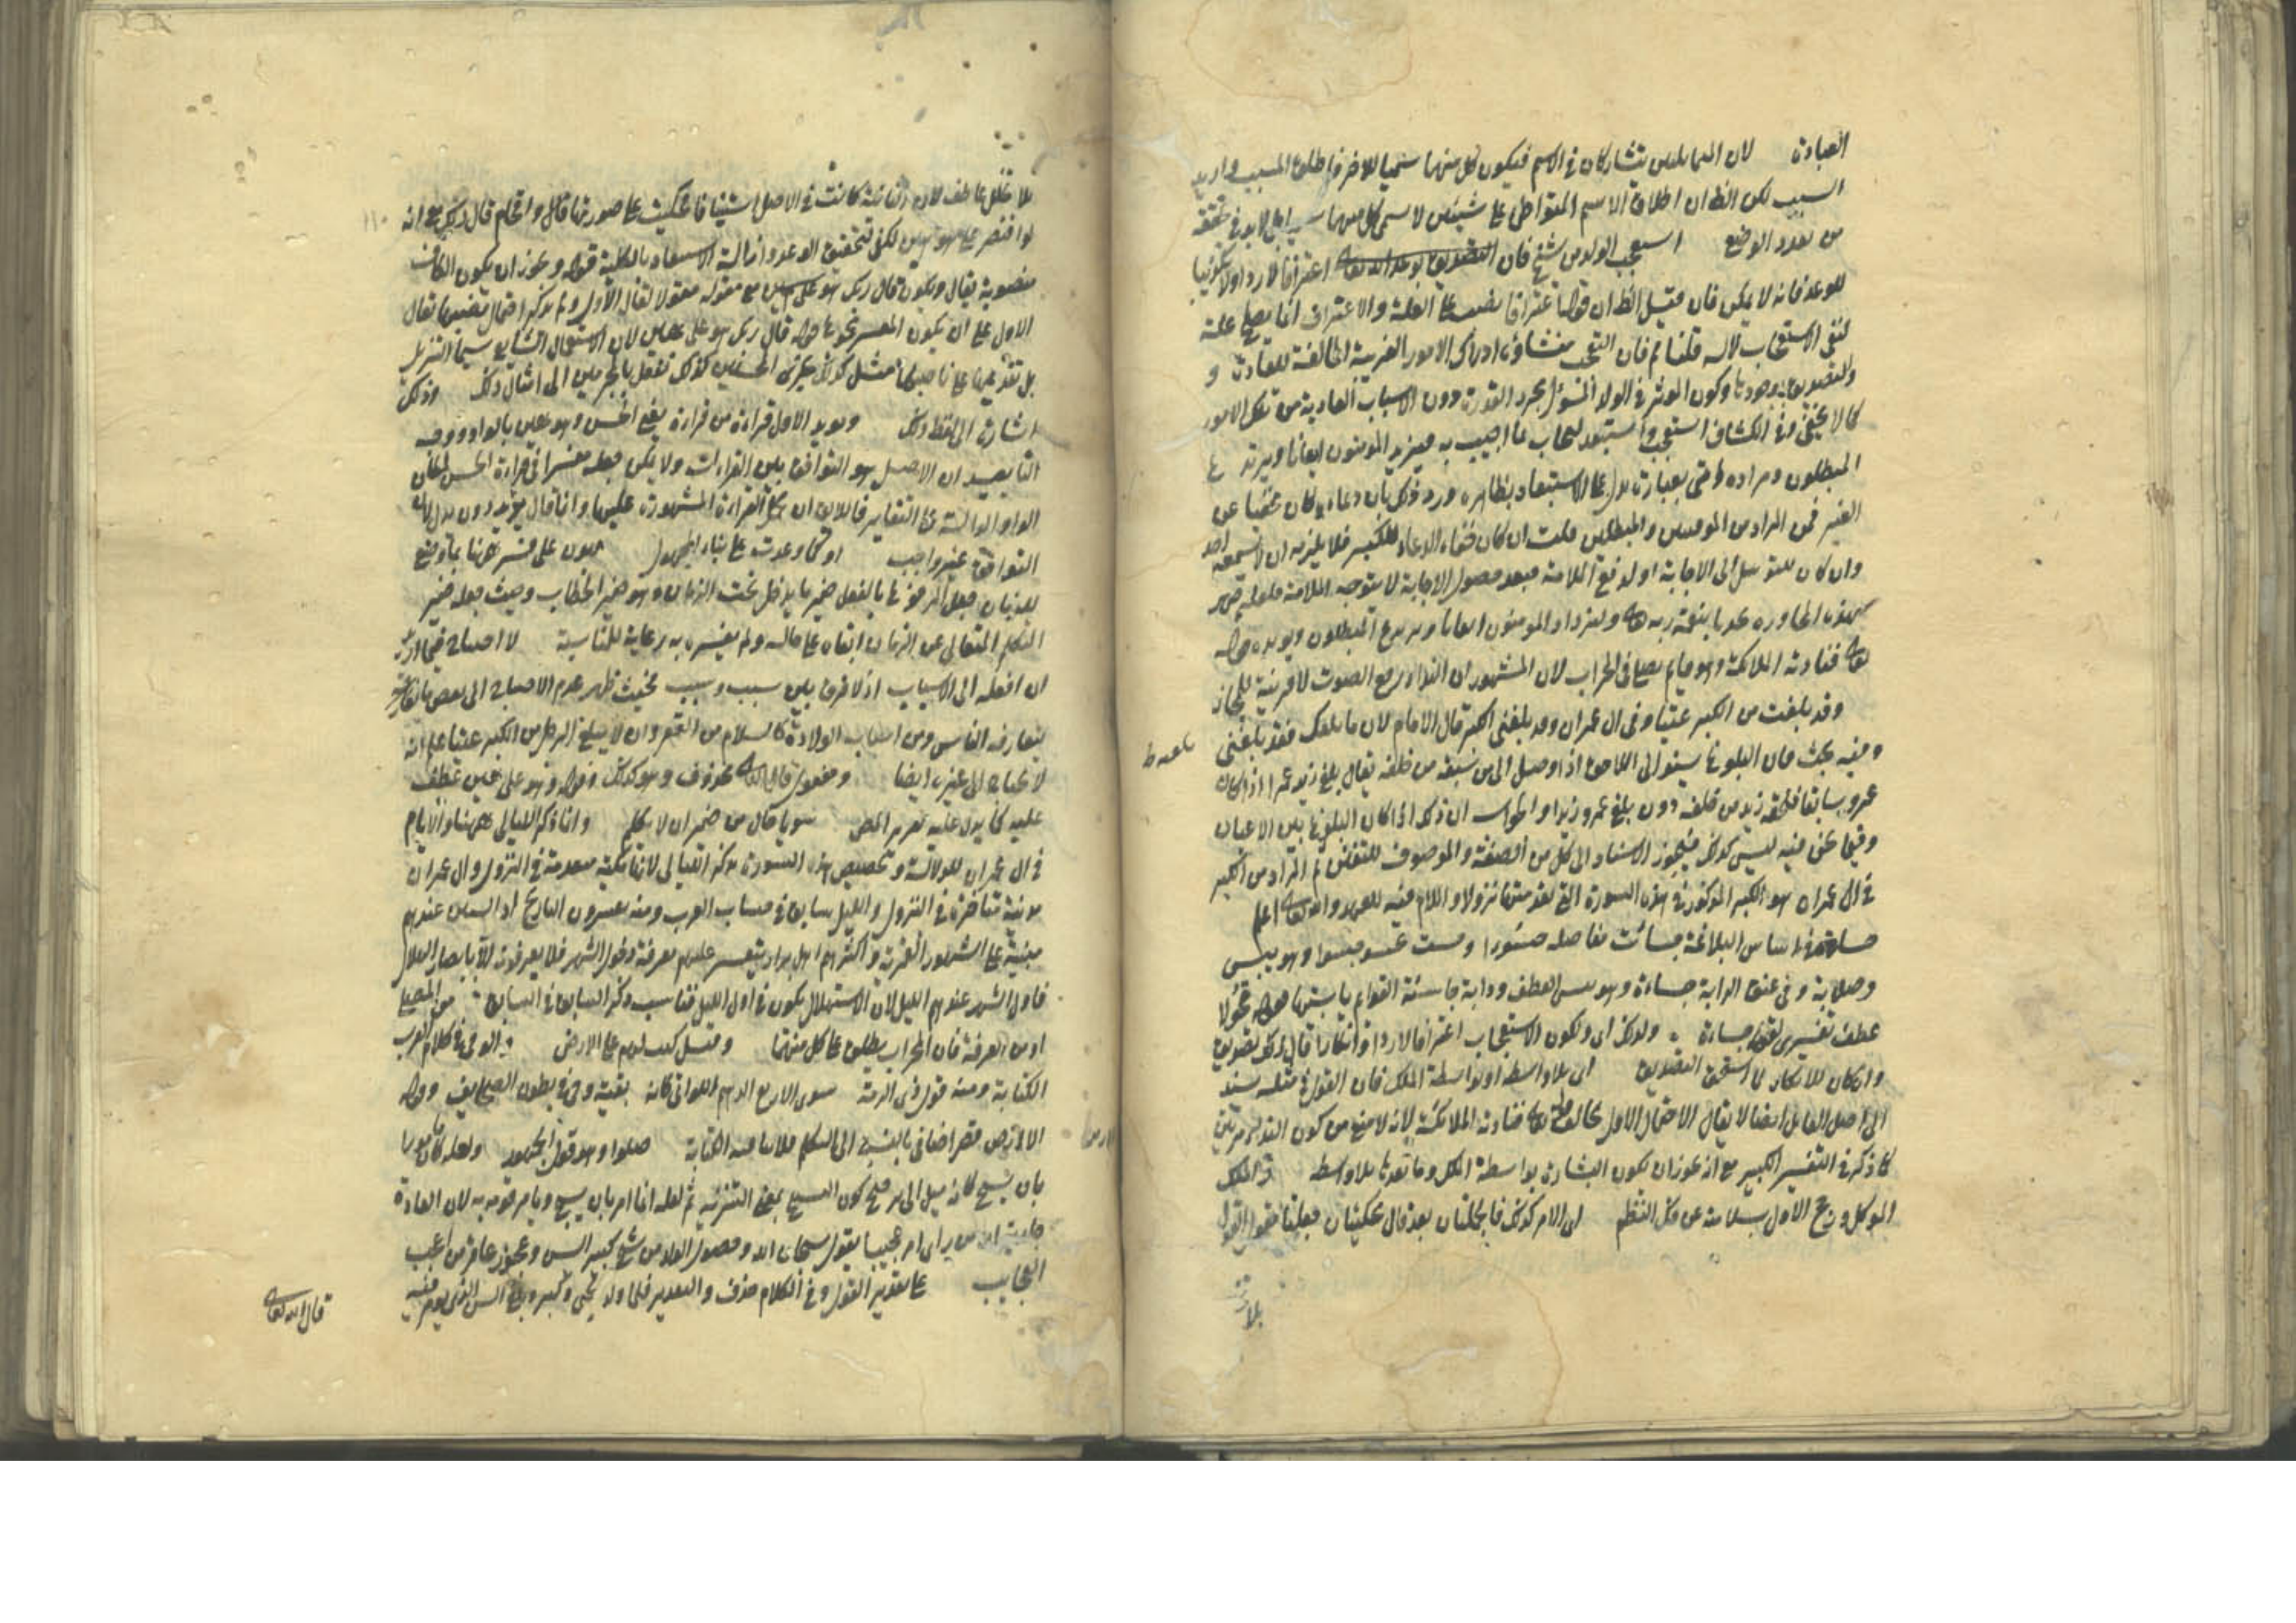 العبادة لان المتماثلين يتشاركان في الاسم فيكون كل منهما سميا للاخر فاطلق المسبب واريد
السبب لكن الظ ان اطلاق الاسم المتواطئ على شيئين لا سمى كل منهما لابد في تحققه
من تعدد الوضع استعجب الولد من شيخ فان التصديق بوعد الله تعالى اعترافا لا رد اولا تكذيبا
للوعد فانه لا يمكن فان قيل الظ ان قوله اعترافا نصب على العلة والاعتراف انما يصلح علة
لنفي الاستعجاب لا له قلنا نعم فان التعجب منشاؤه ادراك الامور الغريبة المخالفة للعادة و
والتصديق بوجودها وكون المؤثر في الولد المسؤل مجرد القدرة دون الاسباب العادية من تلك الامور
كما لا يخفى وفي الكشاف استعجب واستبعد ليجاب بما اجيب به فيزيد المؤمنون ايقانا ويرتدع
المبطلون ومراده وحتى بعبارة يدل على الاستبعاد بظاهره ورد ذلك بان دعاءه كان مخفيا عن
الغير فمن المراد من المومنين والمبطلين قلت ان كان خفاء الدعاء للكبر فلا يلزمه ان لا يسمعه احد
وان كان للتوسل الى الاجابة او لدفع الملامة فبعد حصول الاجابة لا يتوجه الملامة فلعله جهر
بهذه المحاوره تحدثا بنعمة ربه تعالى وليزداد المومنون ايقانا ويرتدع المبطلون ويؤيده قوله
تعالى فنادته الملائكة وهو قايم يصلي في المحراب لان المشهور ان النداء رفع الصوت لا قرينة للمجاز
وقد بلغت من الكبر عتيا وفي ال عمران وقد بلغني الكبر قال الامام لان ما بلغك فقد بلغته
وفيه بحث فان البلوغ يستوالى اللاحق اذا وصل الى من سبقه من خلفه يقال بلغ زيد عمرا اذا كان
عمرو سابقا فلحقه زيد من خلفه دون بلغ عمرو زيدا والجواب ان ذلك اذا كان البلوغ بين الاعيان
وفيما نحن فيه ليس كذلك فيجوز الاسناد الى كل من الصفة والموصوف للتفنن ثم المراد من الكبر
في ال عمران هو الكبر المذكور في هذه السورة التي تقدمتها نزولا واللام فيه للعهد والله تعالى اعلم
جساوة في اساس البلاغة جسأت مفاصله جسورا وهو يبس
وصلابة وفي عنق الدابة جساءة وهو يبس العطف ودابة جاسئة القوايم يابستها قوله قحولا
عطف تفسيري لقوله جساءة ولذلك اي ولكون الاستعجاب اعترافا لا رد او انكارا قال كذلك تصديق
وان كان للانكار لما استحق التصديق اي بلا واسطة او بواسطة الملك فان القول في مثله سند
الى اصل القايل ايضا لا يقال الاحتمال الاول يخالف قوله تعالى فنادته الملائكة لانه لا منع من كون النداء مرتين
كما ذكره في التفسير الكبير مع انه يجوز ان يكون البشارة بواسطة الملك وما بعدها بلا واسطة والملك
الموكل ورجح الاول بسلامته عن فك النظم اي الامر كذلك فالجملتان بعد قال محكيتان جعلتا مقول القول
بلا
بلا تخلل عاطف لان الثانية كانت في الاصل استينافا محكيت على صورتها قال واقحام قال ربك مع انه
لو اقتصر على هو هين لكفى لتحقيق الوعد وازالة الاستبعاد بالكلية قوله ويجوز ان يكون الكاف
منصوبة بقال ويكون قال ربك هو على هين مع مقوله مقولا لقال الاول ولم يذكر احتمال نصبها بقال
الاول على ان يكون المفسر نحو ما قوله قال ربك هو على هين لان الاستعمال الشايع سيما التنزيل
بل تقديمها على ناصبها مثل كذلك نجزي المحسنين كذلك نفعل بالمجرمين الى امثال ذلك وذلك
اشارة الى لفظ ذلك ويؤيد الاول قراءة من قراءة يعني الحسن وهو هين بالواو ووجه
التاييد ان الاصل هو التوافق بين القراءات ولا يمكن جعله مفسرا في قراءة الحسن لمكان
الواو الدالة على التغاير فاللايق ان يحمل القراءة المشهورة عليها وانما قال يؤيد دون يدل لان
التوافق غير واجب او كما وعدت على بناء المجهول يهون على فسر ههنا بما وضع
للزمان جعل المرفوع بالفعل ضمير ما يدخل تحت الزمان وهو ضمير الخطاب وحيث جعله ضمير
التكلم المتعالي عن الزمان ابقاه على حاله ولم يفسره به رعاية للمناسبة لا احتياج فيما اريد
ان افعله الى الاسباب اذ لا فرق بين سبب وسبب بحيث ظهر عدم الاحتياج الى بعض ما
يتعارفه الناس ومن اسباب الولادة كالسلام من العقر وان لا يبلغ الرجل من الكبر عتيا علم انه
لا يحتاج الى غيره ايضا ومفعول قال الثاني محذوف وهو كذلك وقوله وهو علي هين عطف
عليه كما يدل عليه تقرير المص سويا حال من ضمير ان لا تكلم وانما ذكر الليالي ههنا والايام
في ال عمران للدلالة وتخصيص هذه السورة بذكر الليالي لانها مكية متقدمة في النزول وال عمران
مدنية متاخرة في النزول والليل سابق في حساب العرب ومنه يعتبرون التاريخ اذ السنن عندهم
مبنية على الشهور القمرية واكثرهم اهل بواد يتعسر عليهم معرفة دخول الشهر فلا يعرفونه الا بابصار الهلال
فاول الشهر عندهم الليل لان الاستهلال يكون في اول الليل فناسب ذكر السابق في السابق من المصلى
او من الغرفة فان المحراب يطلق على كل منهما وقيل كتب لهم على الارض والوحي في كلام العرب
الكتابة ومنه قول ذي الرمة سوى الاربع الدهم اللواتي كانه بقية وحي في بطون الصحايف وقوله
الا رمزا قصر اضافي بالنسبة الى التكلم فلا ينافيه الكتابة صلوا وهو قول الجمهور ولعله كان مامورا
بان يسبح كانه ميل الى ترجيح كون التسبيح بمعنى التنزيه ثم لعله انما امر بان يسبح ويامر قومه به لان العادة
جارية ان من يرى امر عجيبا يقول سبحان الله وحصول الولد من شيخ كبير السن وعجوز عاقر من اعجب
العجايب على تقدير القول وفي الكلام حذف والتقدير فلما ولد يحيى وكبر وبلغ السن الذي يؤمر فيه
قال الله تعالى